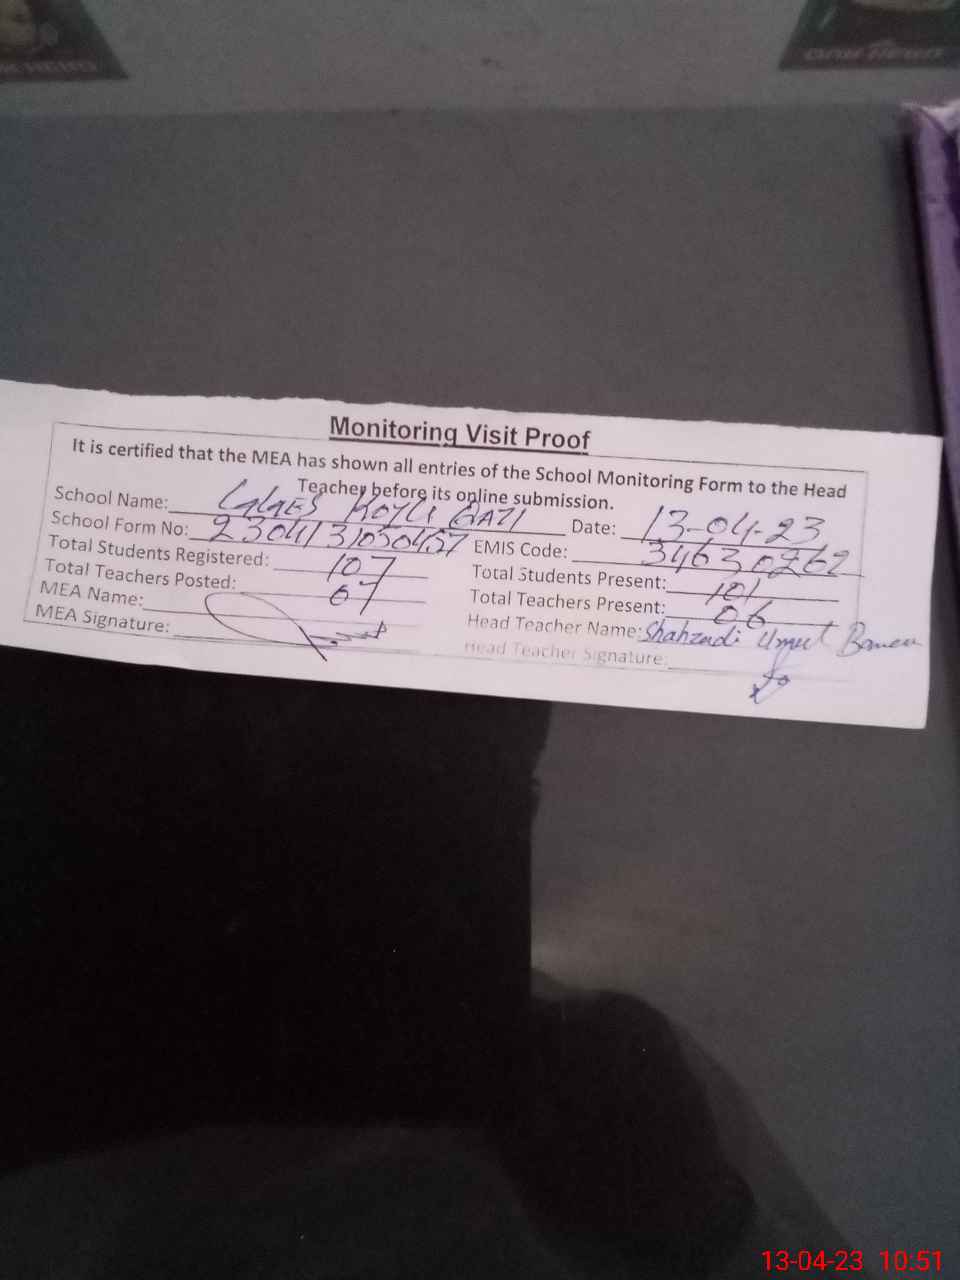 Monitoring Visit Proof
It is certified that the MEA has shown all entries of the School Monitoring Form to the Head
Teacher before its online submission.
School Name: Date: 13-04-23
School Form No: 23041331030457 EMIS Code: 34630262
Total Students Registered: 107 Total Students Present: 101
Total Teachers Posted: 07 Total Teachers Present: 06
MEA Name: Head Teacher Name: Shahzadi
MEA Signature: Head Teacher Signature:
13-04-23 10:51